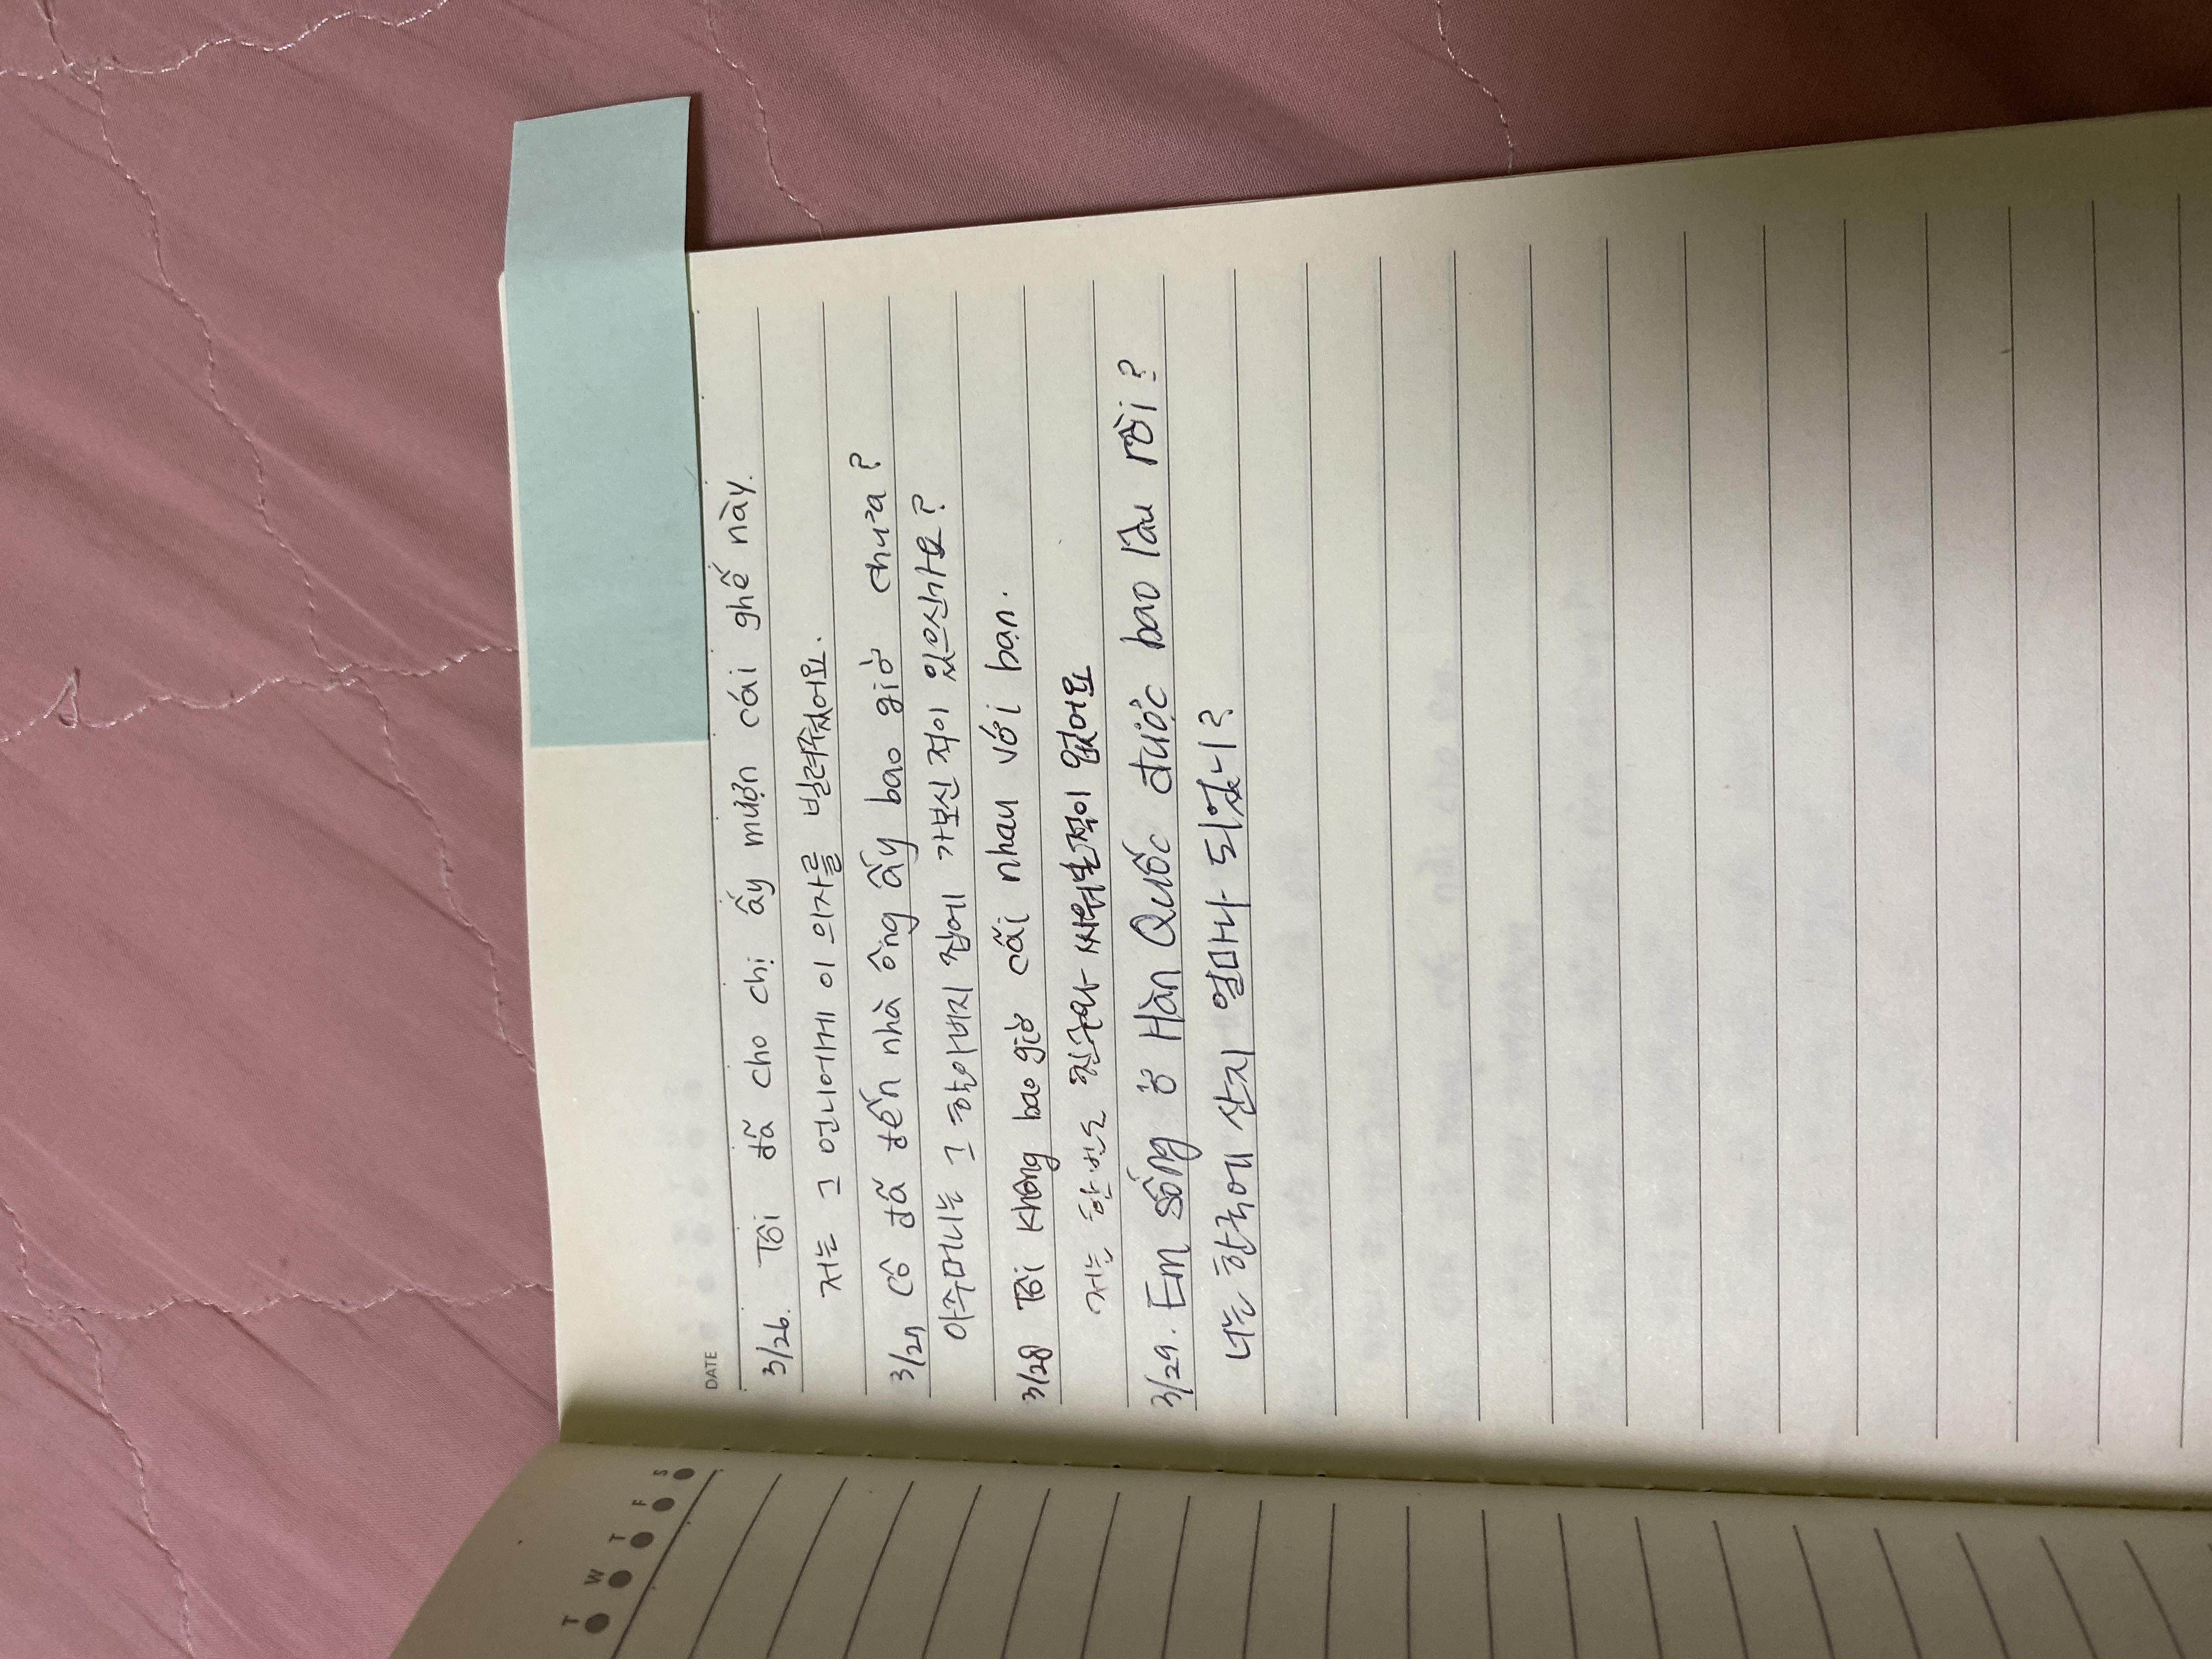 DATE
3/26. Tôi đã cho chị ấy mượn cái ghế này.
저는 그 언니에게 이 의자를 빌려주었어요.
3/27 Cô đã đến nhà ông ấy bao giờ chưa?
아주머니는 그 할아버지 집에 가보신 적이 있으신가요?
3/28 Tôi không bao giờ cãi nhau với bạn.
저는 한번도 친구와 싸워본적이 없어요
3/29. Em sống ở Hàn Quốc được bao lâu rồi?
너는 한국에 산지 얼마나 되었니?
T W T F S